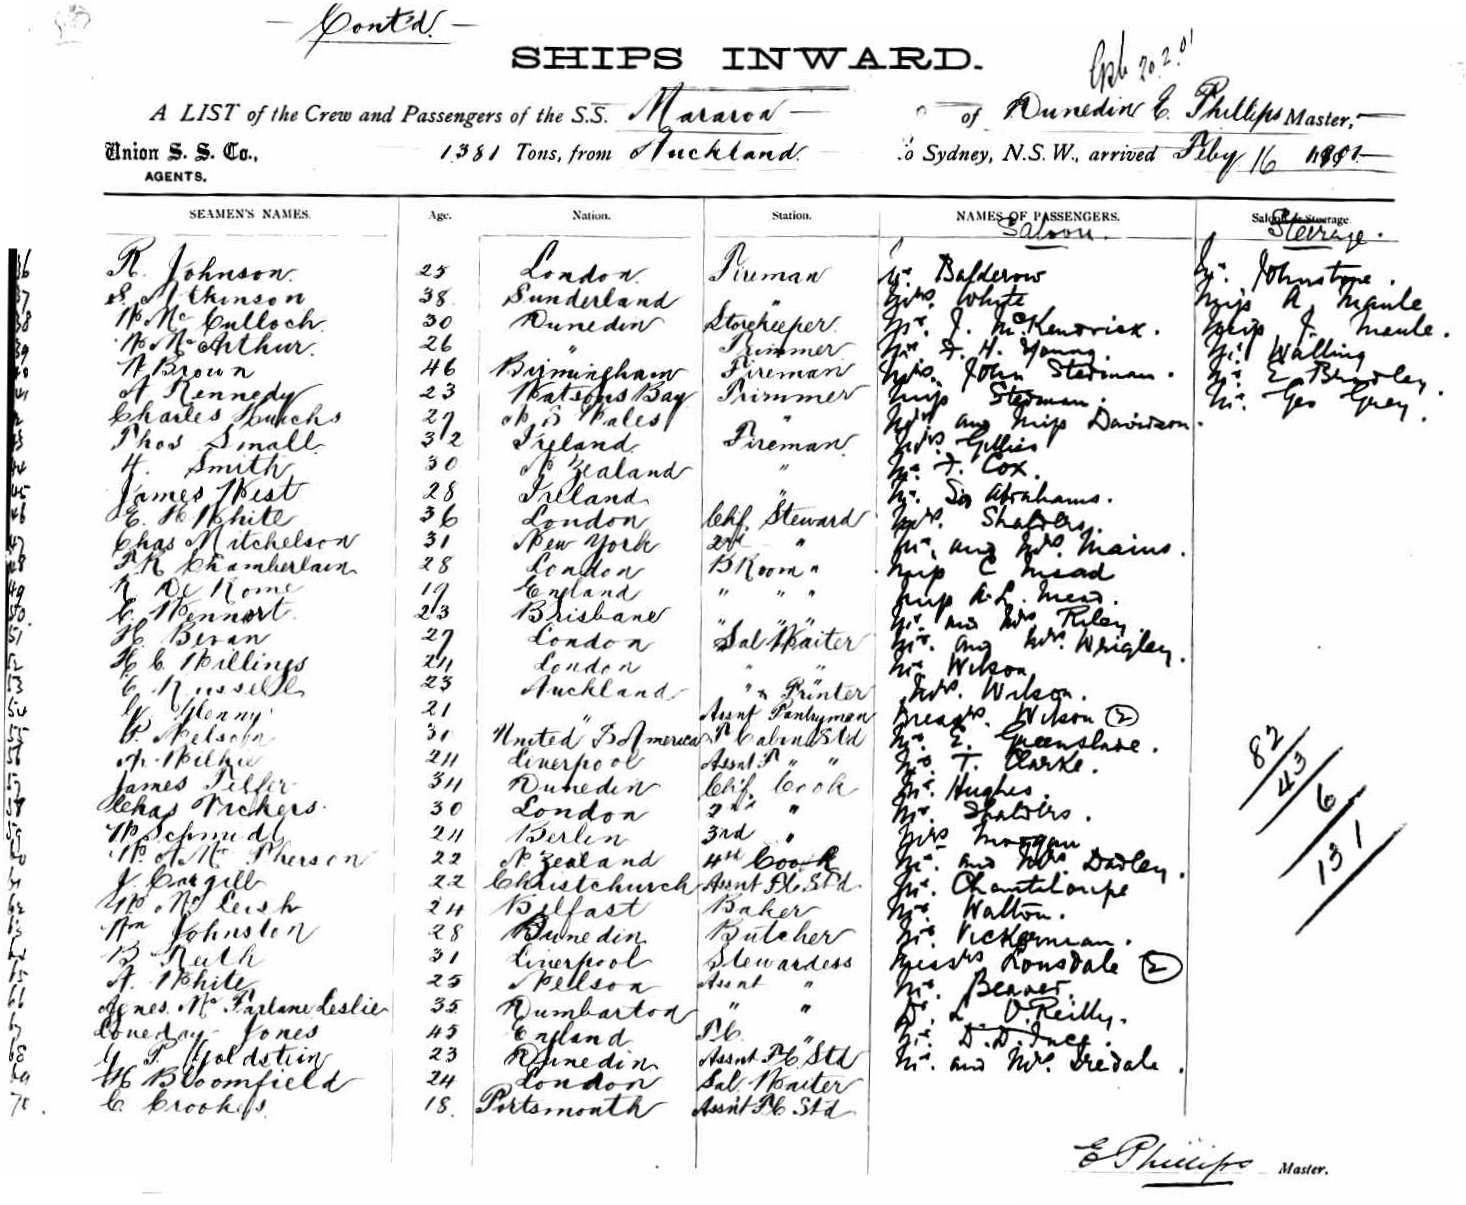 Cont'd.
SHIPS INWARD.
20.2.01
A LIST of the Crew and Passengers of the S.S. Mararoa of Dunedin E Phillips Master,
Union S. S. Co., 1381 Tons, from Auckland to Sydney, N.S.W., arrived Feby 16
AGENTS.
SEAMEN'S NAMES. Age. Nation. Station. NAMES OF PASSENGERS. Saloon or Steerage
Saloon. Steerage.
36 R. Johnson. 25 London Fireman Mr. Balderow Mr. Johnstone.
37 S. Atkinson 38 Sunderland " Mrs. Whyte Miss A Maule
38 W Mc Culloch 30 Dunedin Storekeeper Mr. J. McKendrick. Miss J. Maule.
39 W McArthur. 26 " Trimmer Mr. F. H. Young. Mr. Walling
40 W Brown 46 Birmingham Fireman Mrs. John Stedman. Mr. E Bradley.
41 A Kennedy 23 Watsons Bay Trimmer Miss Stedman. Mr. Geo Grey.
Charles 27 N. S Wales " Mrs and Miss Davidson.
43 Thos Small 32 Ireland Fireman. Mrs Gillies
44 H. Smith 30 N Zealand " Mr. F. Cox.
45 James West 28 Ireland " Mr. Abrahams.
46 E. H White 36 London Chf. Steward Mrs.
47 Chas Mitchelson 31 New York 2nd " Mr. and Mrs. Mains.
48 F R Chamberlain 28 London B Room " Miss C Mead
49 R De Rome 19 England " " " Miss A. L. Mead.
50 E. Wennort. 23 Brisbane " " " Mr. and Mrs Riley.
51 H. Bevan 27 London Sal Waiter Mr. and Mrs. Wrigley.
52 H C Willings 24 London " " Mr Wilson
53 C Russell 23 Auckland " " Printer Mrs. Wilson.
54 Glenny 21 " Assnt Pantryman Messrs. Wilson (2)
55 P. Nelson 31 United S America F Cabin Std Mr. E. Greenslade.
56 Wilkie 24 Liverpool Assnt F " " Mr. T. Clarke.
57 James Telfer 34 Dunedin Chf. Cook Mr. Hughes.
58 Chas Vickers. 30 London 2nd " Mr.
59 W Schmidt 24 Berlin 3rd " Mrs Morgan
60 W. A Mc Pherson 22 N Zealand 4th Cook Mr. and Mrs. Dudley.
61 J. Cargill 22 Christchurch Assnt F.C. Std. Mr. Chanteloupe
62 W Mc Leish 24 Belfast Baker Mr. Walton.
63 Wm Johnston 28 Dunedin Butcher Mr. Vickerman.
64 B Reith 31 Liverpool Stewardess Messrs Lonsdale (2)
65 A. White 25 Nelson Assnt " Mr. Beaver.
66 Agnes Mc Farlane Leslie 35 Dumbarton " " Dr. L O'Reilly.
67 Loveday Jones 45 England F.C. " Mr. D. D. Ince.
68 G F Goldstein 23 Dunedin Assnt F C Std Mr. and Mrs. Iredale.
69 H Bloomfield 24 London Sal. Waiter
70. C Crookes. 18. Portsmouth Assnt F C Std.
82/43/6/131
E Phillips Master.